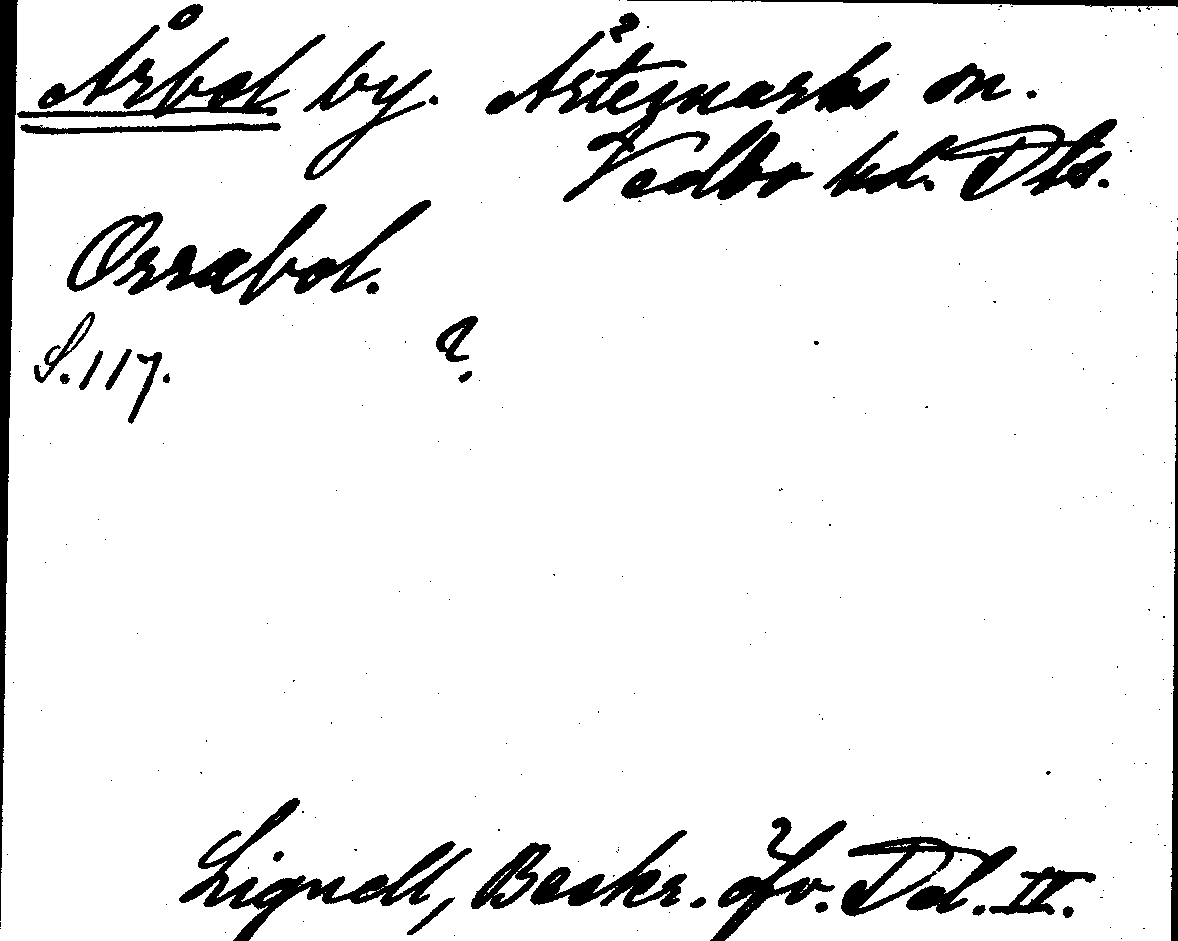 Årbol by. Årtemarks sn.
Vedbo hd. Dls.
Orrabol.
S. 117. ?
Lignell, Beskr. öfv. Dal. II.